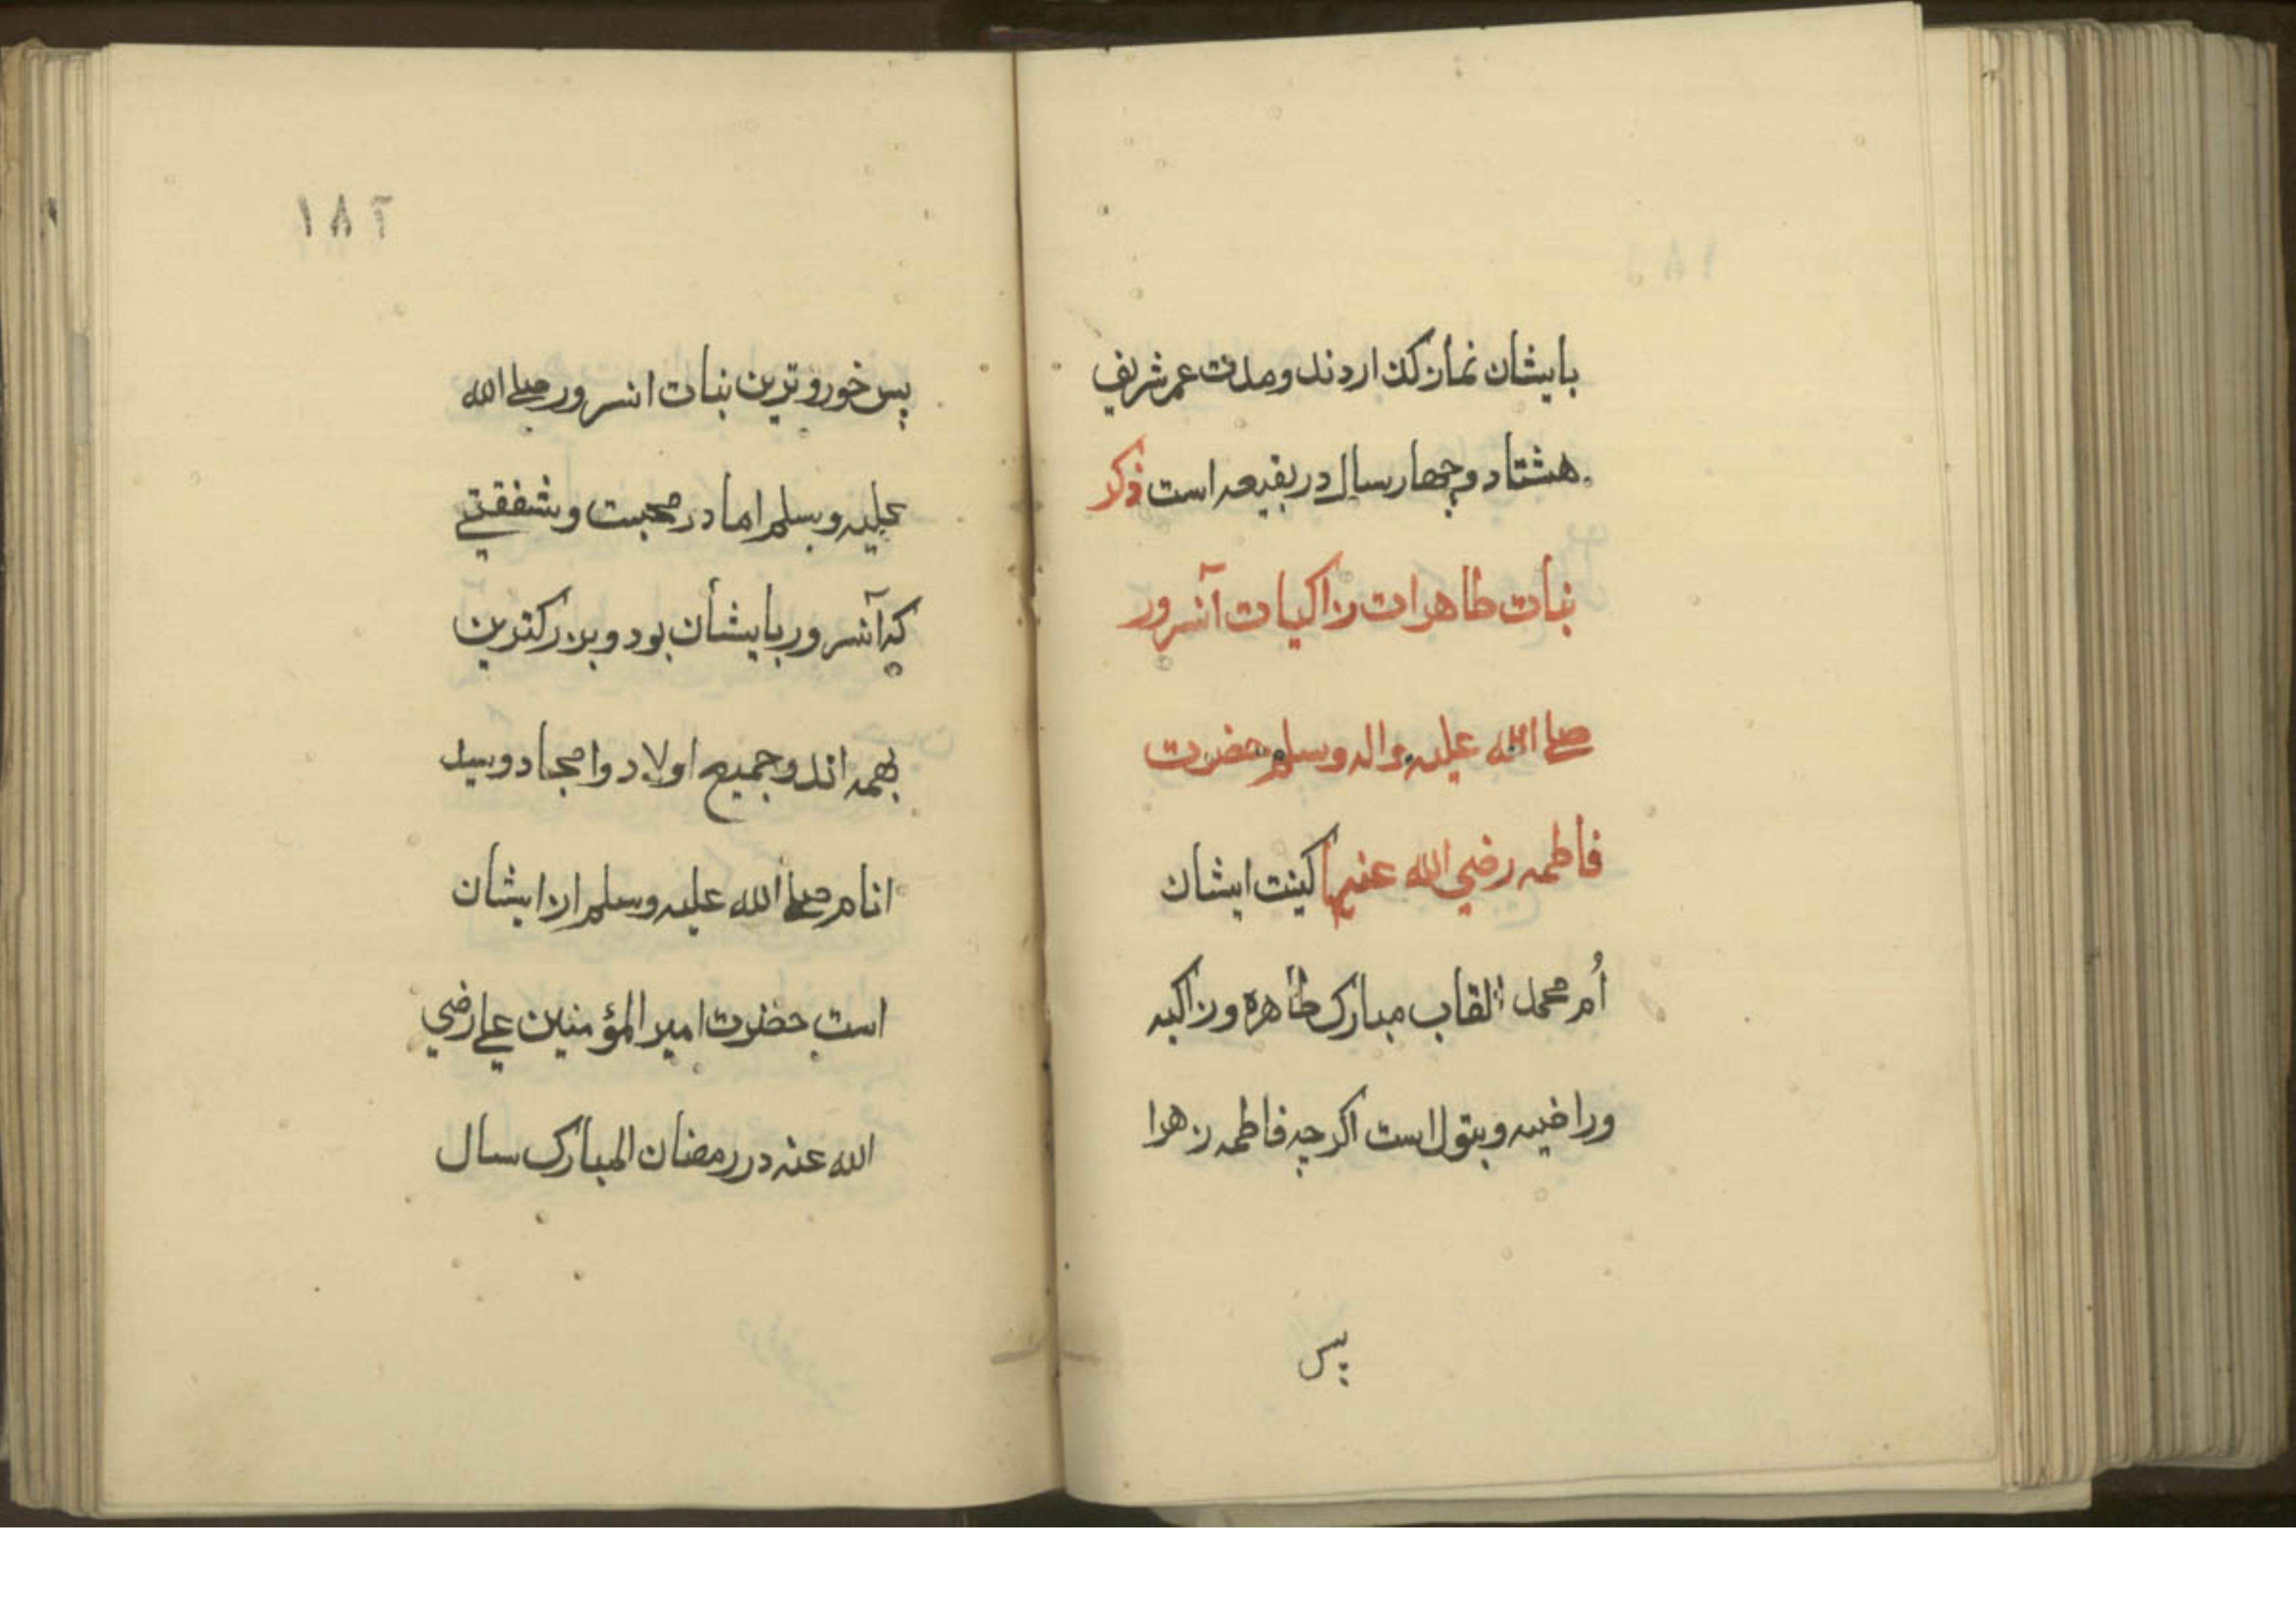 بایشان نماز کذاردند ومدت عمر شریف
هشتاد وچهار سال در بقیعه است ذکر
بنات طاهرات زاکیات آنسرور
صلے الله علیه واله وسلم حضرت
فاطمه رضي الله عنها کینت ایشان
أم محمد القاب مبارک طاهره وزاکیه
وراضیه وبتول است اکرچه فاطمه زهرا
پس
۱۸۲
پس خوردترین بنات انسرور صلے الله
علیه وسلم اما در محبت وشفقتے
که آنسرور بایشان بود وبزرکترین
بهمه اند وجمیع اولاد وامجاد وسید
انام صلے الله علیه وسلم از ایشان
است حضرت امیر المؤمنین علے رضي
الله عنه در رمضان المبارک سال